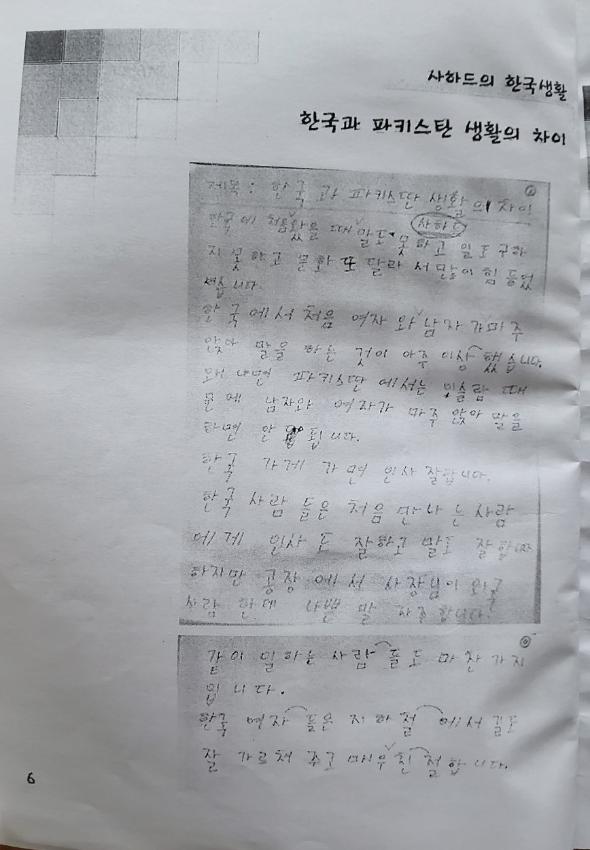 사하드의 한국생활
한국과 파키스탄 생활의 차이
제목: 한국과 파키스탄 생활의 차이
사하드
한국에 처음 왔을 때 말도 못하고 일도 구하
지 못하고 문화 또 달라서 많이 힘 들었
습니다.
한국에서 처음 여자 와 남자 가 마주
앉아 말을 하는 것이 아주 이상 했습니다.
왜냐면 파키스탄 에서는 이슬람 때
문에 남자와 여자가 마주 앉아 말을
하면 안 됩니다.
한국 가게 가면 인사 잘합니다.
한국 사람 들은 처음 만나 는 사람
에게 인사 도 잘하고 말도 잘합니다
하지만 공장 에서 사장님이 외국
사람 한테 나쁜 말 자주 합니다.
같이 일하는 사람 들도 마찬가지
입니다.
한국 여자 들은 지하철 에서 길도
잘 가르쳐 주고 매우 친절합니다.
6